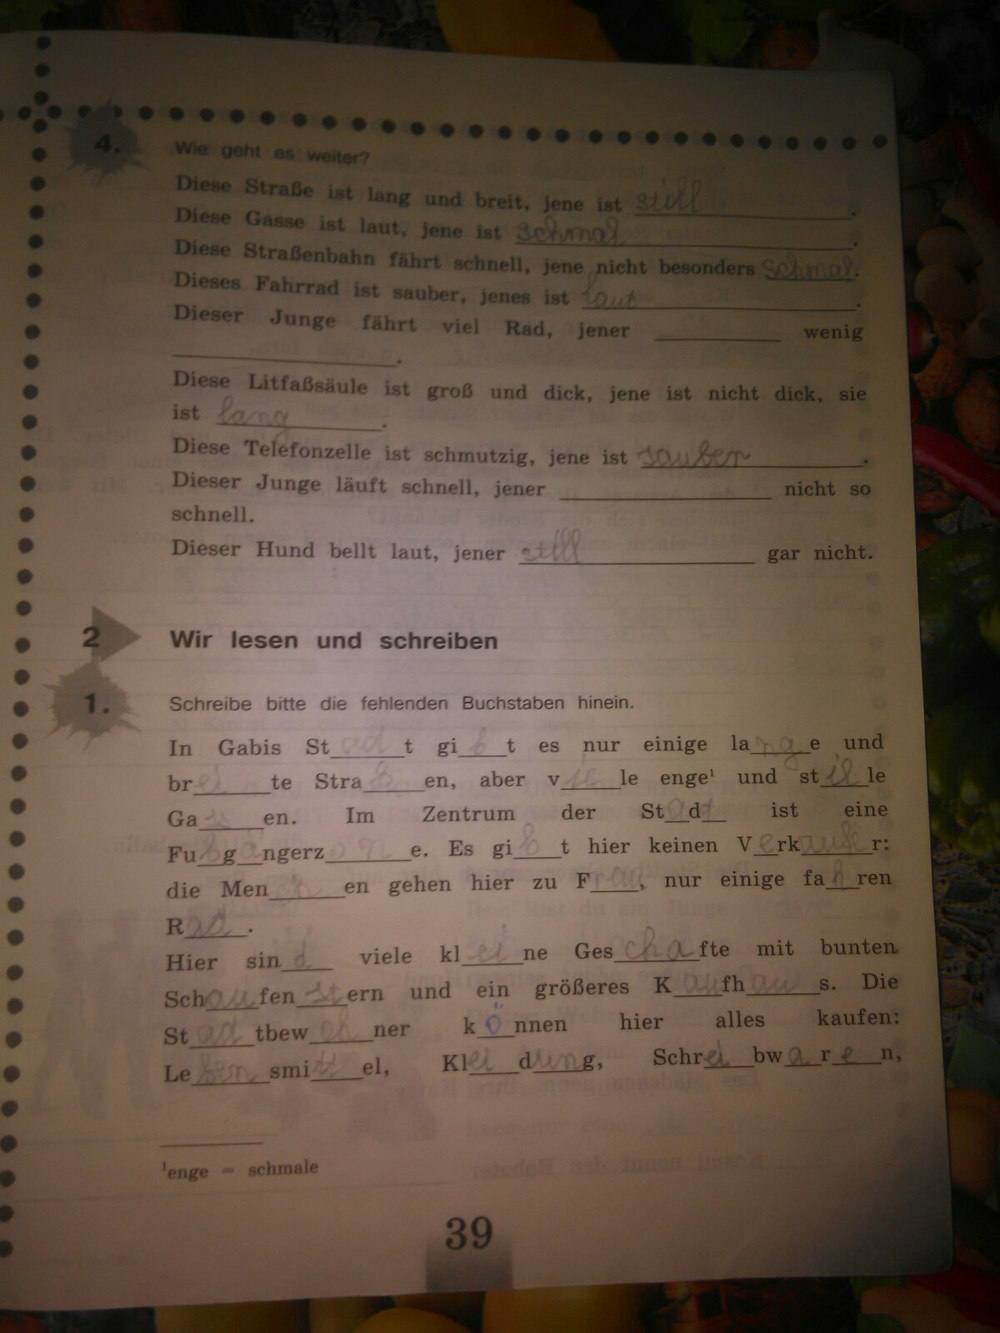 4. Wie geht es weiter?
Diese Straße ist lang und breit, jene ist still.
Diese Gasse ist laut, jene ist schmal.
Diese Straßenbahn fährt schnell, jene nicht besonders schmal.
Dieses Fahrrad ist sauber, jenes ist laut.
Dieser Junge fährt viel Rad, jener ______ wenig
______.
Diese Litfaßsäule ist groß und dick, jene ist nicht dick, sie
ist lang.
Diese Telefonzelle ist schmutzig, jene ist sauber.
Dieser Junge läuft schnell, jener ______ nicht so
schnell.
Dieser Hund bellt laut, jener still gar nicht.
2 Wir lesen und schreiben
1. Schreibe bitte die fehlenden Buchstaben hinein.
In Gabis St ad t gi b t es nur einige la ng e und
br ei te Stra ß en, aber v ie le enge¹ und st il le
Ga ss en. Im Zentrum der St a d t ist eine
Fu ß g ä ngerz on e. Es gi b t hier keinen V e rk r:
die Men sch en gehen hier zu F , nur einige fa h ren
R ad.
Hier sin d viele kl ei ne Ges cha fte mit bunten
Sch au fen st ern und ein größeres K au fh au s. Die
St ad tbew oh ner k ö nnen hier alles kaufen:
Le ben smi tt el, Kl ei d un g, Schr ei bw a r e n,
¹enge = schmale
39